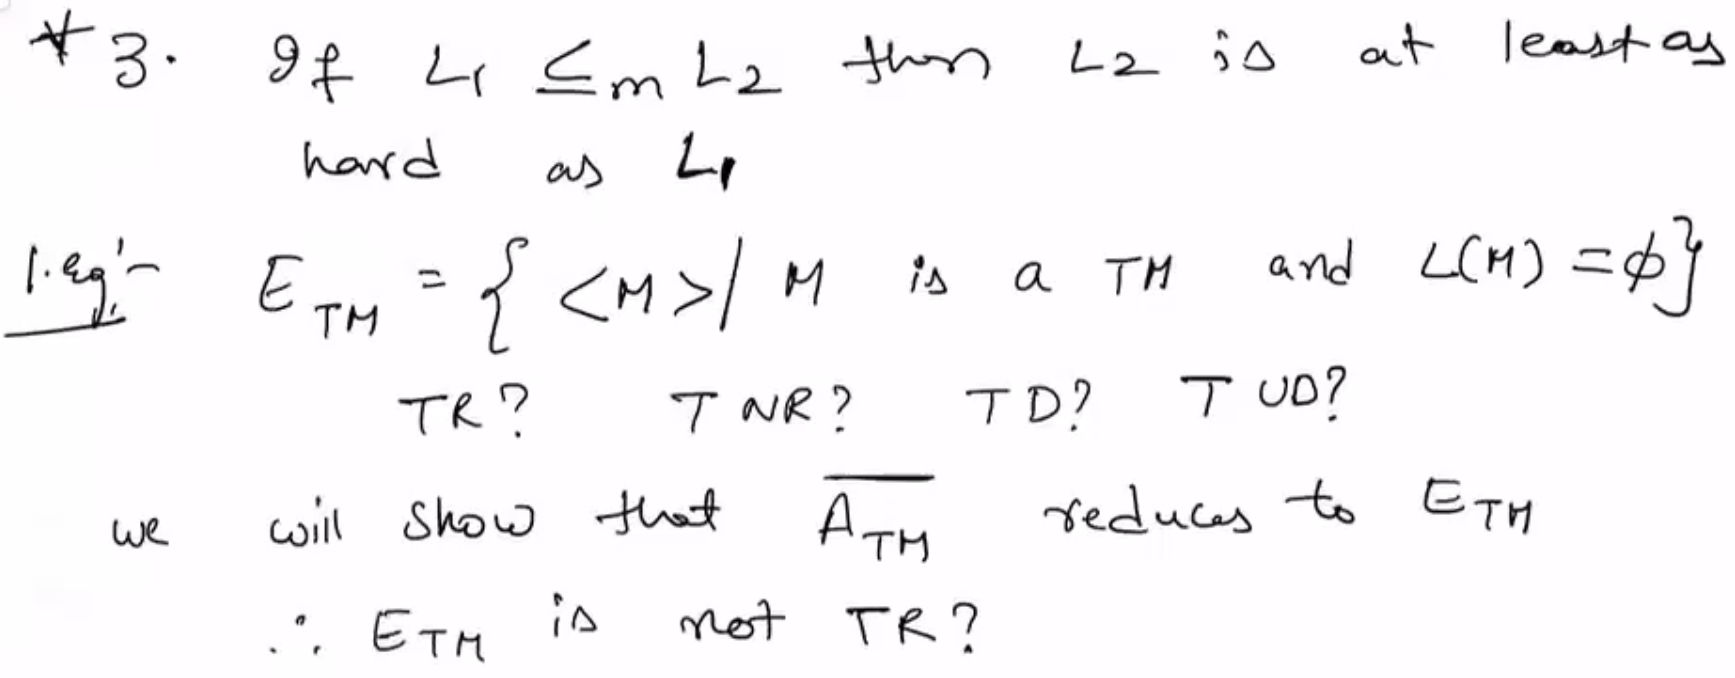 * 3. If L1 ≤m L2 then L2 is at least as
hard as L1
1. eg:- E_TM = { <M> / M is a TM and L(M) = ϕ}
TR? TNR? TD? TUD?
we will show that \overline{A_TM} reduces to E_TM
∴ E_TM is not TR?